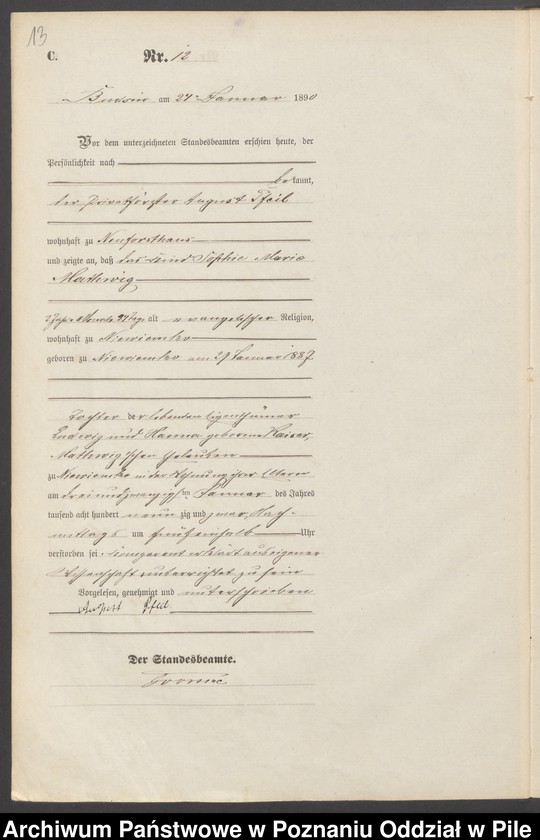 13
C. Nr. 12
Budsin am 24ten Januar 1890
Vor dem unterzeichneten Standesbeamten erschien heute, der
Persönlichkeit nach
bekannt,
der Privatförster August Pfeil
wohnhaft zu Neuforsthaus
und zeigte an, daß das Kind Sophie Marie
Mathwig
alt evangelischer Religion,
wohnhaft zu Niewiemko
geboren zu Niewiemko am 29 Januar 1887
Tochter der lebenden Eigenthümer
Ludwig und Hanna geborene Kaiser,
Mathwig'schen Eheleuten
zu Niewiemko in der Wohnung ihrer Eltern
am drei und zwanzigsten Januar des Jahres
tausend acht hundert neunzig und zwar Nach-
mittags um fünfeinhalb Uhr
verstorben sei. erklärt aus eigener
Wissenschaft unterrichtet zu sein
Vorgelesen, genehmigt und unterschrieben
August Pfeil
Der Standesbeamte.
Archiwum Państwowe w Poznaniu Oddział w Pile